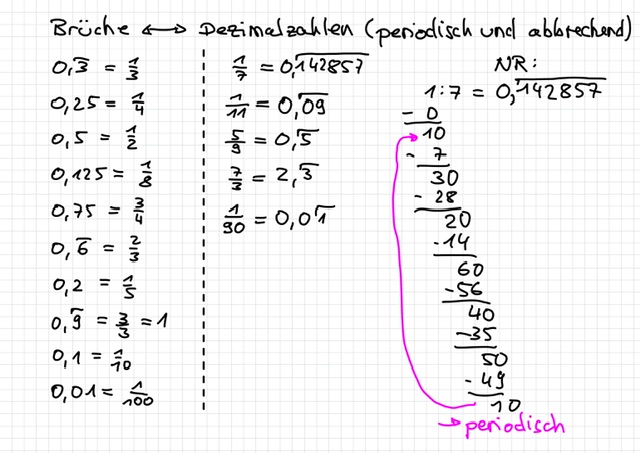 Brüche ↔ Dezimalzahlen (periodisch und abbrechend)
0,3̅ = 1/3
0,25 = 1/4
0,5 = 1/2
0,125 = 1/8
0,75 = 3/4
0,6̅ = 2/3
0,2 = 1/5
0,9̅ = 3/3 = 1
0,1 = 1/10
0,01 = 1/100
1/7 = 0,1̅4̅2̅8̅5̅7̅
1/11 = 0,0̅9̅
5/9 = 0,5̅
7/3 = 2,3̅
1/90 = 0,01̅
NR:
1:7 = 0,1̅4̅2̅8̅5̅7̅
- 0
10
- 7
30
- 28
20
-14
60
-56
40
-35
50
- 49
10
→ periodisch